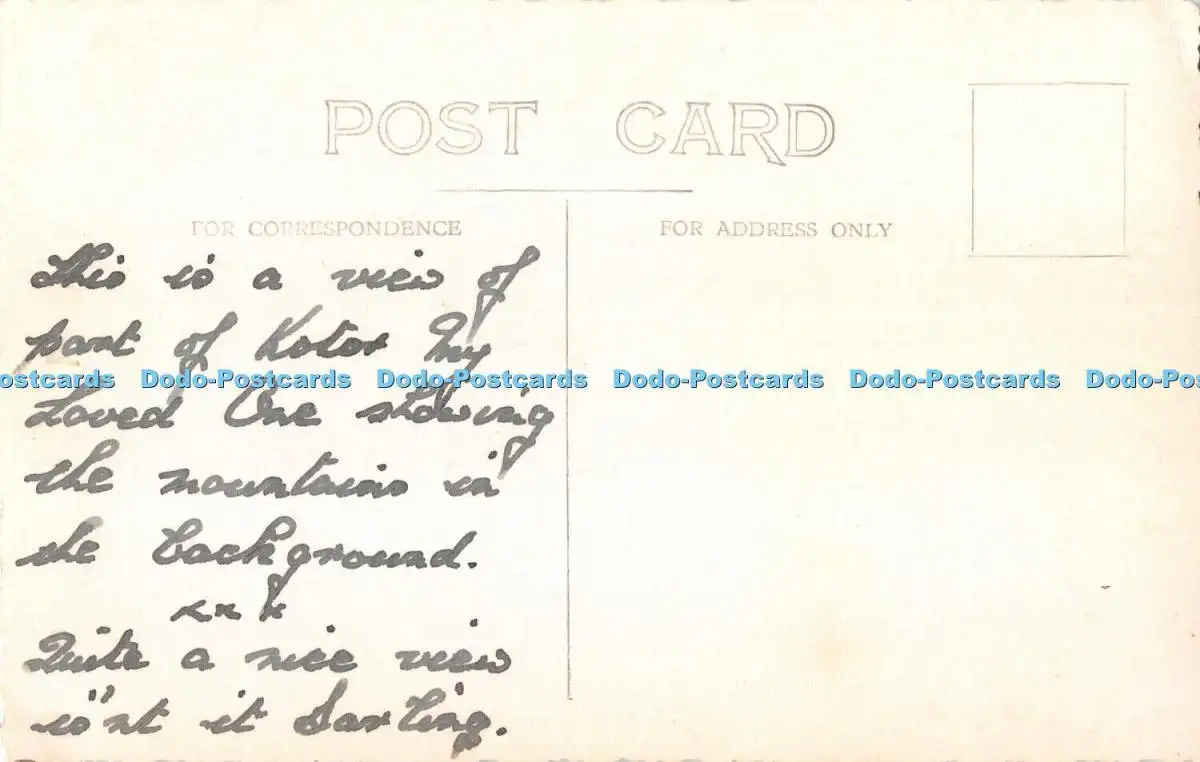 POST CARD
FOR CORRESPONDENCE
FOR ADDRESS ONLY
This is a view of
part of Kotor My
Loved One showing
the mountains in
the background.
x x x
Quite a nice view
is"nt it Darling.
Dodo-Postcards Dodo-Postcards Dodo-Postcards Dodo-Postcards Dodo-Postcards Dodo-Postcards